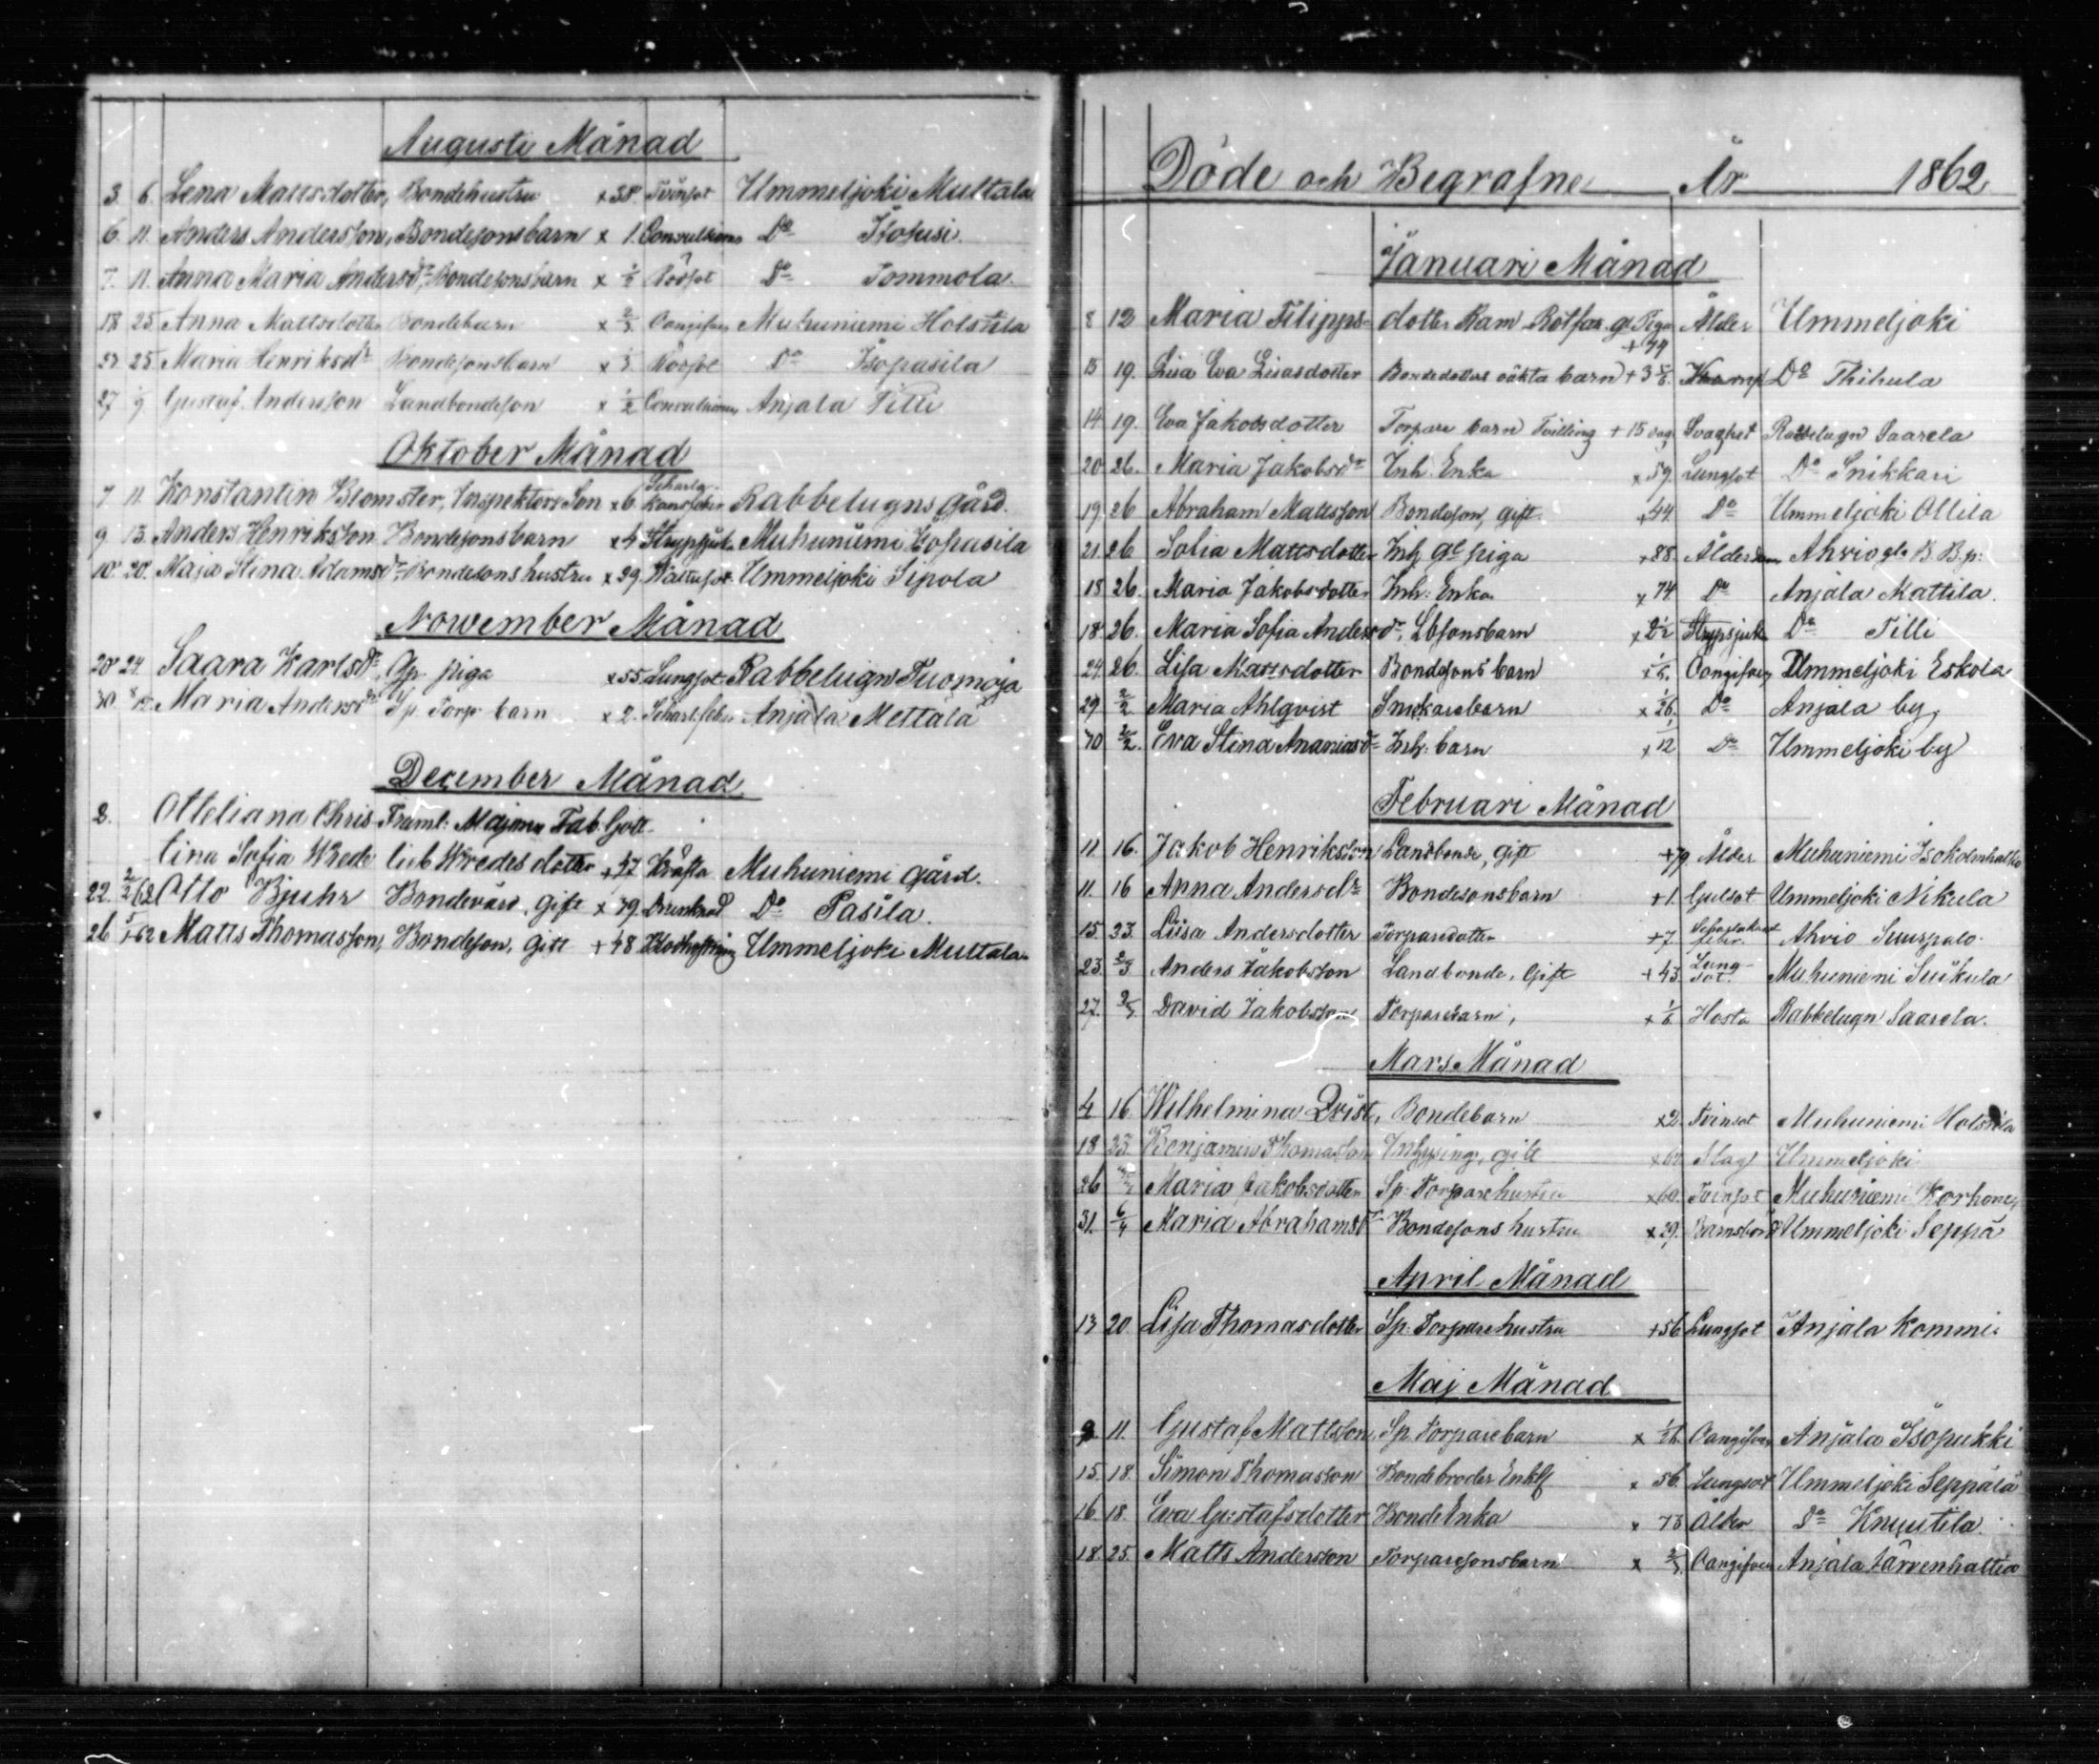 Augusti Månad
3. 6. Lena Mattsdotter, Bondehustru x 38. Tvinsot Ummeljoki Multala
6. 11. Anders Andersson, Bondesonsbarn x 1. Convulsions Do
7. 11. Anna Maria Andersdr Bondesonsbarn x Rödsot Do Tommola.
18 25. Anna Mattsdotter Bondebarn x 2/3 Muhuniemi Holstila
25. Maria Henriksdr Bondesonsbarn x Do Isopasila
27 Gustaf Andersson Landbondeson x 1/2 Convulsions Anjala Tilli
Oktober Månad
7. 11. Konstantin Blomster, Inspektors Son x 6. Rabbelugns gård.
9 13. Anders Henriksson Bondesonsbarn x 4 Strypsjuk Muhuniemi Isopasila
10. 20. Maja Stina Adamsdr Bondesons hustru x 29. Ummeljoki Sipola
Nowember Månad
20 24. Saara Karlsdr Sp. piga x 55. Lungsot Rabbelugn Tuomoja
30 Maria Andersdr Sp Torp barn x 2. Scharl.feber Anjala Mettälä
December Månad
2. Otteliana Chris Framl: Majoren Fab. Gott-
tina Sofia Wrede lieb Wredes dotter + 47 Kräfta Muhuniemi gård.
22. 2/2 62 Otto Bjuhr Bondevärd, gift x 79. Do Pasila.
26 5/1 62 Matts Thomasson, Bondeson, gift + 48 Ummeljoki Multala
Döde och Begrafne År 1862
Januari Månad
8 12 Maria Filipps- dotter Ram gl Piga + 79 Ålder Ummeljoki
15 19. Lisa Eva Lisasdotter Bondedotters oäkta barn + 3 Do Thihula
14 19. Eva Jakobsdotter Torpare barn Tvilling + 15 dag. Svaghet Rabbelugn Saarela
20 26. Maria Jakobsdr Inh. Enka x 59. Lungsot Do Snikkari
19. 26 Abraham Mattsson Bondeson, gift +44 Do Ummeljoki Ollila
21. 26 Sofia Mattsdotter Inh gl piga +88. Ålderdom Ahvio
18 26. Maria Jakobsdotter Inh: Enka x 74 Do Anjala Mattila.
18. 26. Maria Sofia Andersdr, Lbsonsbarn x 2 1/2 Strypsjuk Do Tilli
24. 26. Lisa Mattsdotter Bondesons barn Ummeljoki Eskola
29 2/2 Maria Ahlqvist Snickarebarn x 1/26 Do Anjala by
30 2/2. Eva Stina Ananiasdr Inh: barn x 1/12 Do Ummeljoki by
Februari Månad
11. 16. Jakob Henriksson Landbonde, gift +79 Ålder Muhuniemi
11. 16 Anna Andersdr Bondesonsbarn +1. Gulsot Ummeljoki Nikula
15. 23. Liisa Andersdotter Torparedotter +7. Ahvio Suurpalo
23. 2/3 Anders Jakobsson Landbonde, Gift +43. Lungsot. Muhuniemi Suikula
27. David Jakobsson Torparebarn, x 1/6 Hosta Rabbelugn Saarela.
Mars Månad
4 16 Wilhelmina Qvist, Bondebarn x2. Tvinsot Muhuniemi Holstila
18 23. Benjamin Thomasson Inhysing, gift Slag Ummeljoki
26 Maria Jakobsdotter Sp: Torparehustru x60. Tvinsot Muhuniemi Korhonen
31. 6/4 Maria Abrahamsdr Bondesons hustru x 29. Barnsbörd Ummeljoki Seppä
April Månad
13 20 Lisa Thomasdotter Sp. Torparehustru +56 Lungsot Anjala Kommi
Maj Månad
11. Gustaf Mattsson, Sp Torparebarn x Anjala Isopukki
15. 18. Simon Thomasson Bondebroder Enkl x 56. Lungsot Ummeljoki Seppälä
16. 18. Eva Gustafsdotter BondeEnka x 73 Ålder Do Knuutila
18. 25. Matts Andersson Torparesonsbarn x Anjala Järvenhaltia